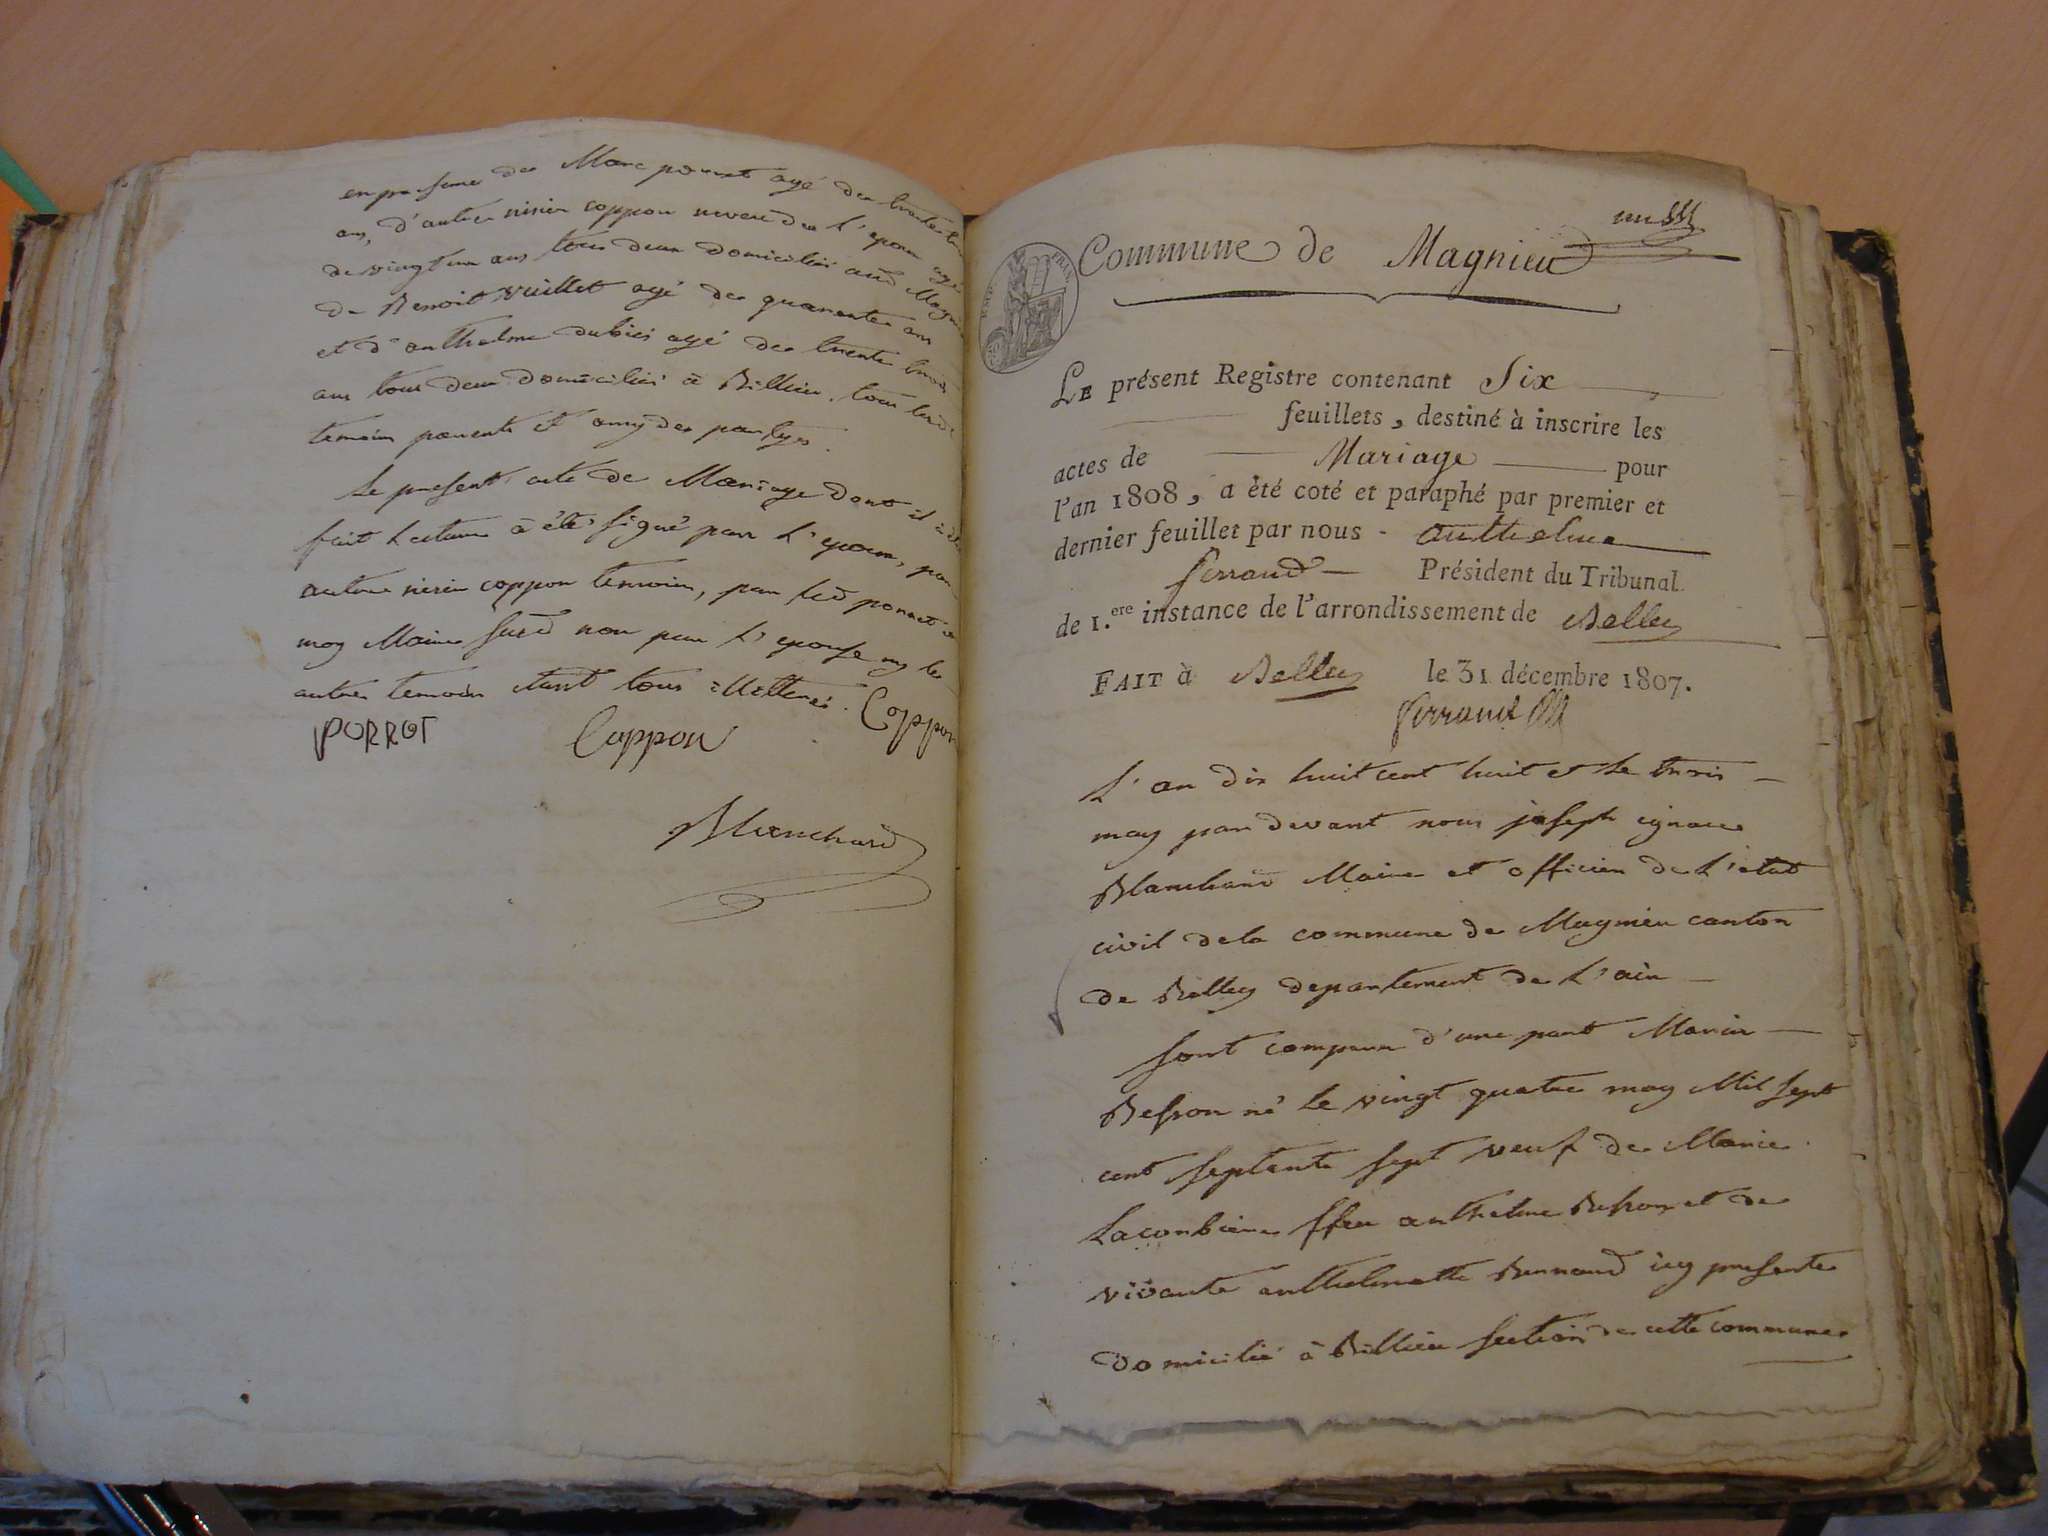 en presence de Marc porret agé de trente
ans, d'autre nisier coppon neveu de L'epoux agé
de vingt un ans tous deux domiciliés aud Magn
de Benoit Vuillet agé de quarante ans
et d'anthelme dubiei agé de trente trois
ans tous deux domiciliés à Billieu, tous
temoins parents et amy des partyes.
Le present acte de Mariage dont il à été
fait Lecture à été signé par L'epoux, par
autre nisier coppon temoin, par led porret et
moy Maire susd non par L'epouse ny les
autres temoins étant tous illetteres. Coppon
PORROT Coppon
Blanchard
Commune de Magnieu
LE présent Registre contenant Six
feuillets, destiné à inscrire les
actes de Mariage pour
l'an 1808, a été coté et paraphé par premier et
dernier feuillet par nous - anthelme
ferrand Président du Tribunal
de 1.ere instance de l'arrondissement de Belley
FAIT à Belley le 31 décembre 1807.
ferrand
L'an dix huit cent huit et le trois
may par devant nous joseph ignace
Blanchard Maire et officier de L'etat
civil de la commune de Magnieu canton
de Belley departement de L'ain
sont comparu d'une part Marin
Besson né le vingt quatre may Mil sept
cent septante sept veuf de Marie
Lacombiere ffeu anthelme Besson et de
vivante anthelmette Bernard icy presente
domicilié à Billieu section de cette commune